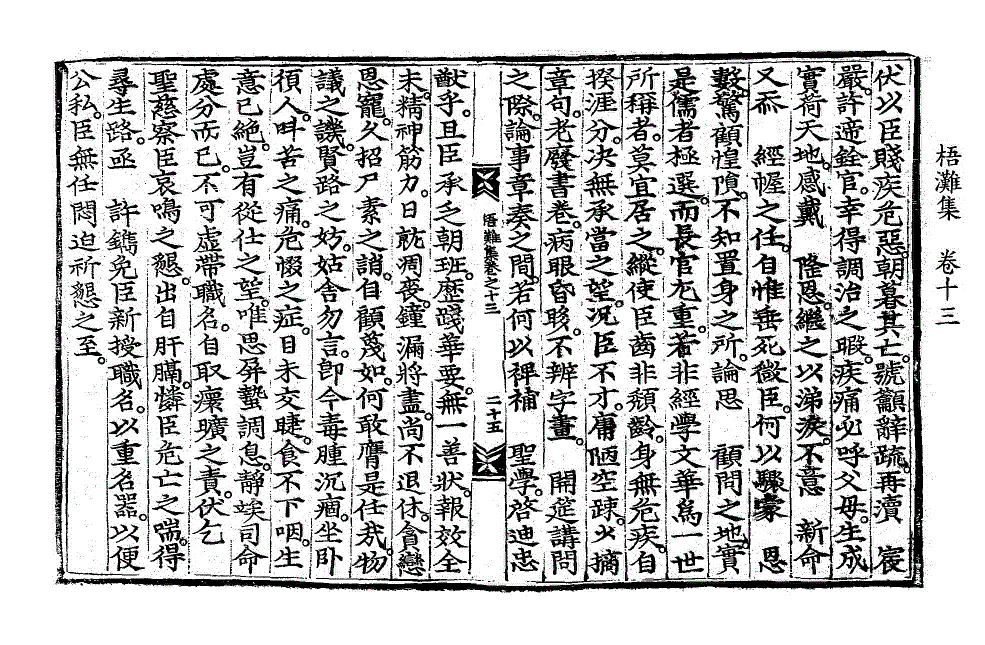 梧灘集 卷十三
伏以臣賤疾危惡。朝暮其亡。號籲辭疏。再瀆 宸
嚴。許遞銓官。幸得調治之暇。疾痛必呼父母。生成
實荷天地。感戴 隆恩。繼之以涕淚。不意 新命
又忝 經幄之任。自惟垂死微臣。何以驟蒙 恩
數。驚顧惶隕。不知置身之所。論思 顧問之地。實
是儒者極選。而長官尤重。若非經學文華爲一世
所稱者。莫宜居之。縱使臣齒非頹齡。身無危疾。自
揆涯分。決無承當之望。況臣不才。庸陋空疎。少摘
章句。老廢書卷。病眼昏眵。不辨字畫。 開筵講問
之際。論事章奏之間。若何以裨補 聖學。啓迪忠
梧灘集卷之十三 二十五
猷乎。且臣承乏朝班。歷踐華要。無一善狀。報效全
未。精神筋力。日就凋喪。鐘漏將盡。尚不退休。貪戀
恩寵。久招尸素之誚。自顧蔑如。何敢膺是任哉。物
議之譏。賢路之妨。姑舍勿言。卽今毒腫沉痼。坐臥
須人。呌苦之痛。危惙之症。目未交睫。食不下咽。生
意已絶。豈有從仕之望。唯思屛蟄調息。靜竢司命
處分而已。不可虛帶職名。自取瘝曠之責。伏乞
聖慈察臣哀鳴之懇。出自肝膈。憐臣危亡之喘。得
尋生路。亟 許鐫免臣新授職名。以重名器。以便
公私。臣無任悶迫祈懇之至。